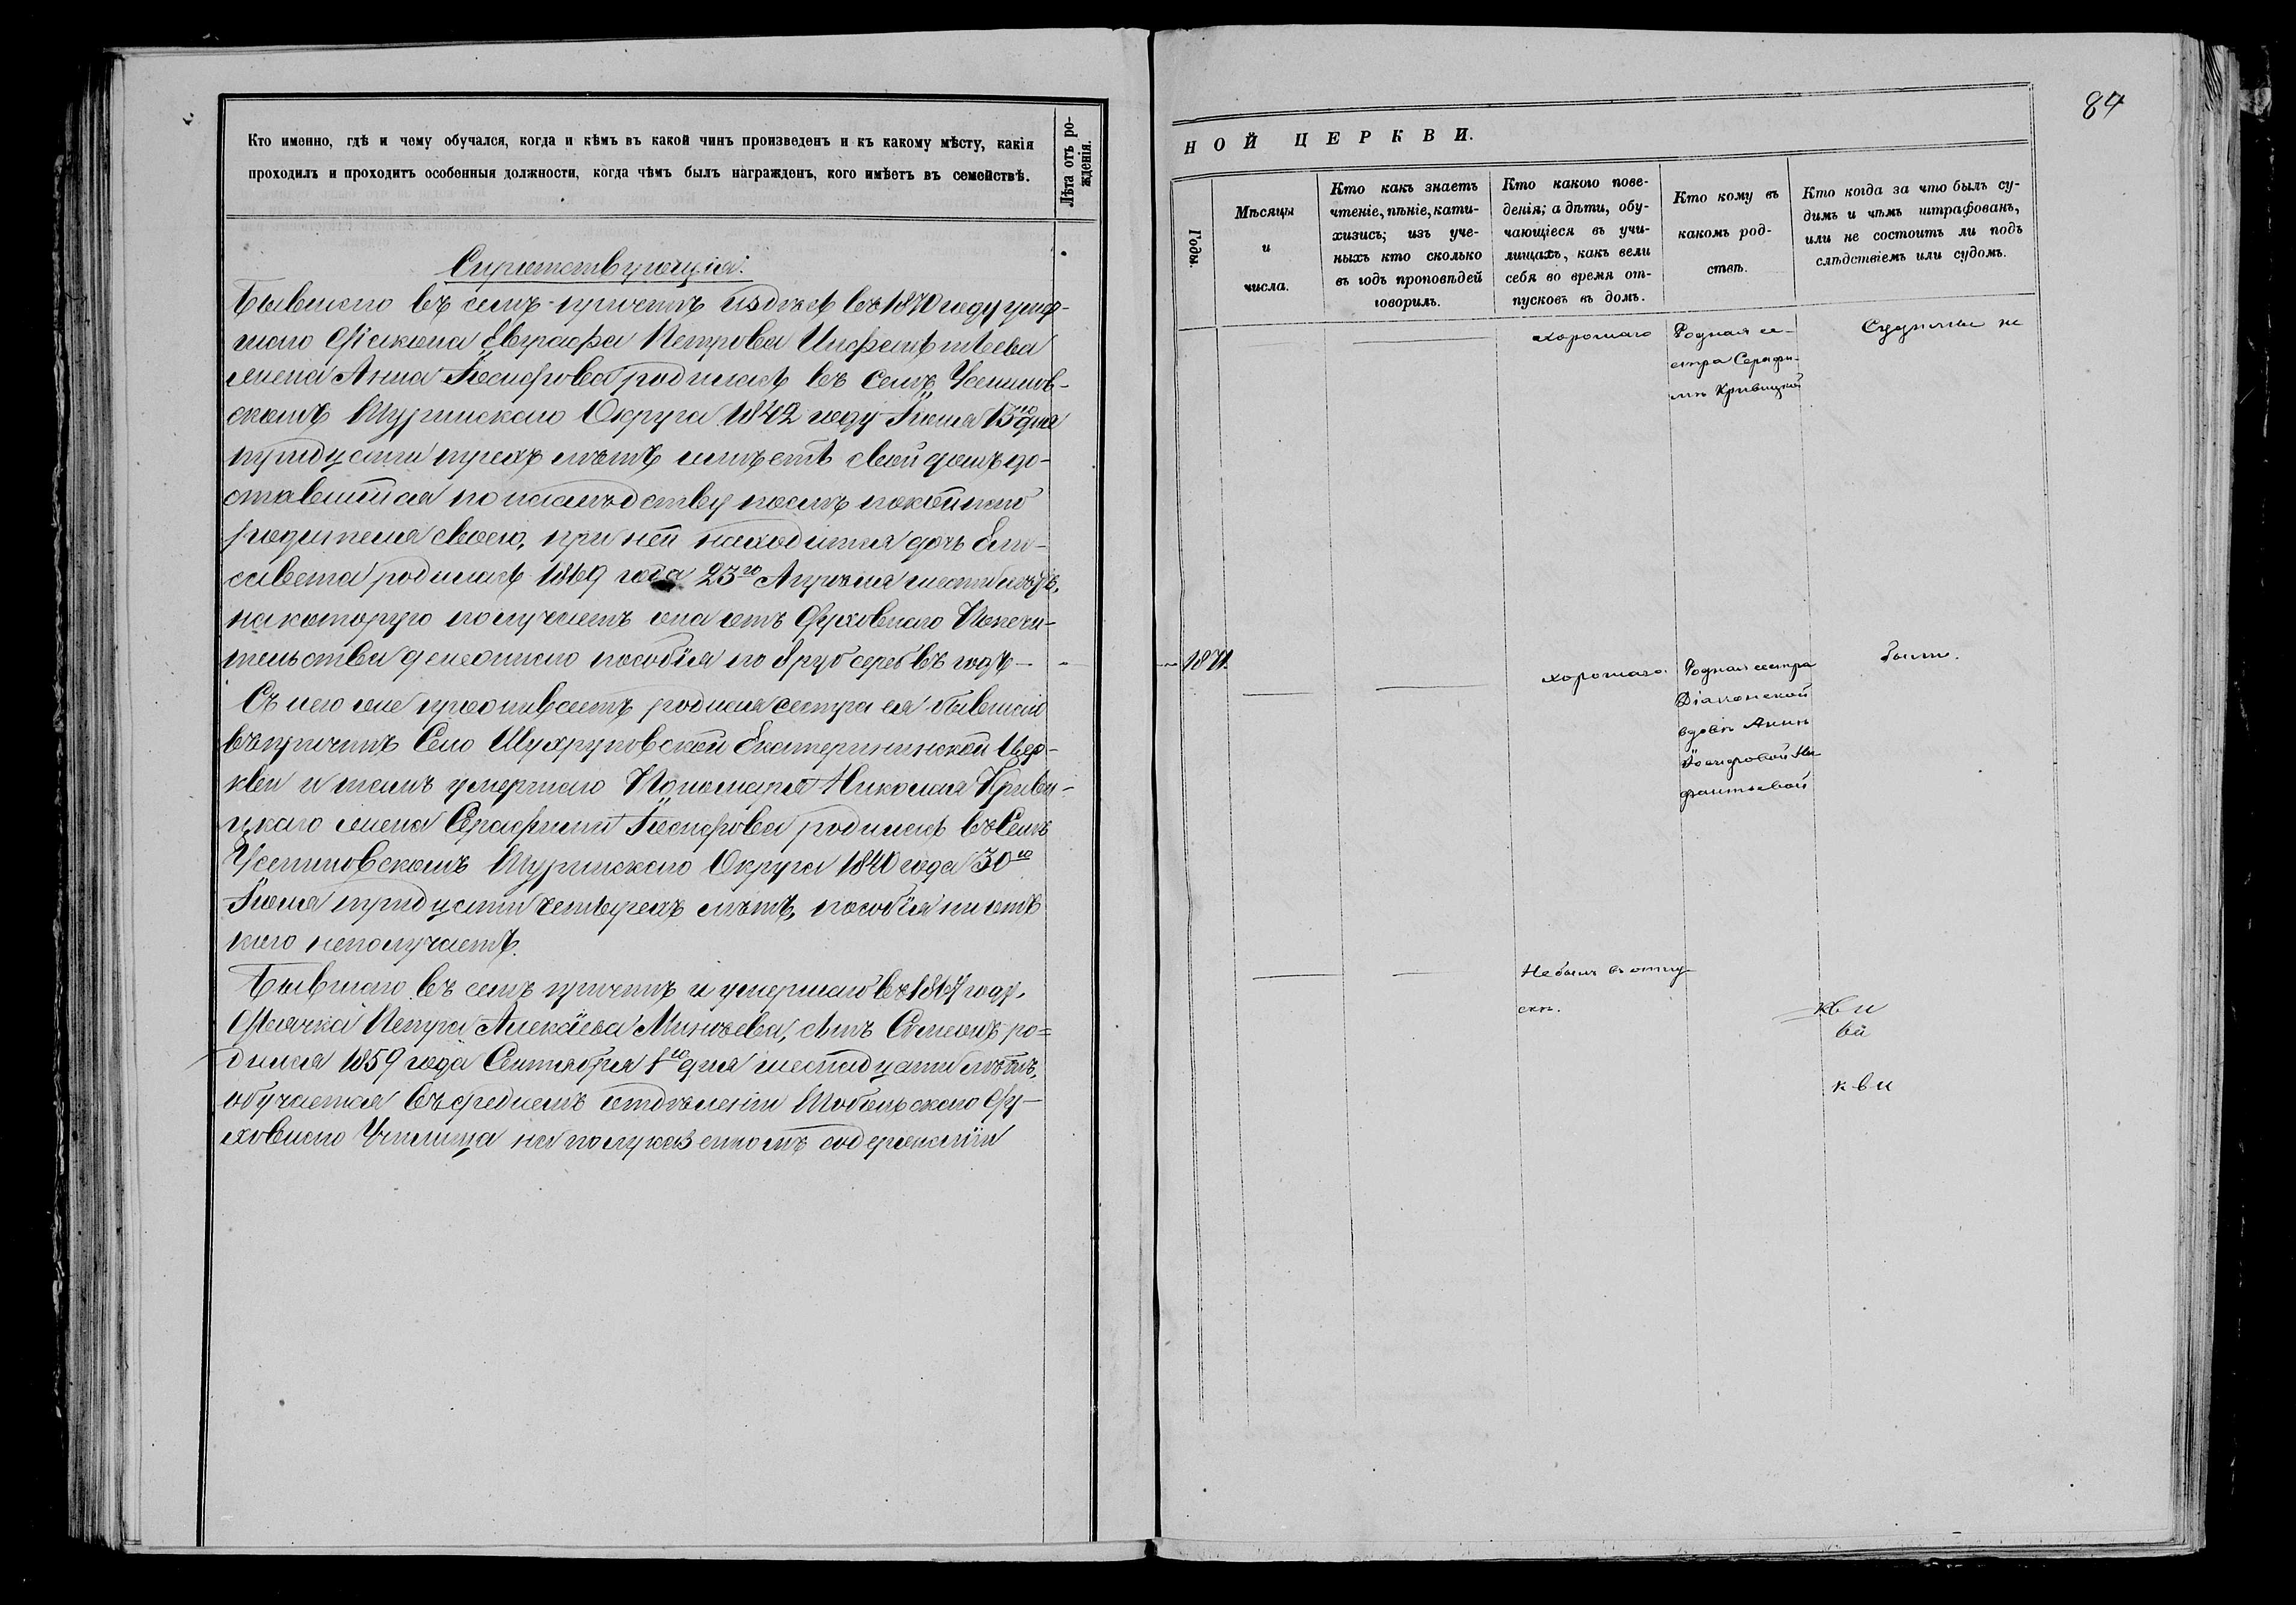 Кто именно, гдѣ и чему обучался, когда и кѣмъ въ какой чинъ произведенъ и къ какому мѣсту, какія
проходилъ и проходитъ особенныя должности, когда чѣмъ былъ награжденъ, кого имѣетъ въ семействѣ.
Лѣта отъ ро-
жденія.
Сиротствующія.
Бывшаго въ семъ причтѣ въ 1870 году умер-
шаго Діакона Евграфа Петрова
жена Анна Іосифова родилась въ селѣ Усенинов-
скомъ Туринскаго Округа 1842 году Іюля 15го дня
тридцати трехъ лѣтъ имѣетъ свой домъ до-
ставшійся по наслѣдству послѣ покойнаго
родителя своего, при ней находится дочь Ели-
савета родилась 1869 года 23го Апрѣля шести лѣтъ,
на которую получаетъ она отъ Духовнаго Попечи-
тельства денежнаго пособія по руб сереб въ годъ
Съ нею же проживаетъ родная сестра ея бывшаго
въ причтѣ Село Шухруповской Екатерининской Цер-
кви и тамъ умершаго Пономаря Николая Криви-
цкаго жена Серафима Іосифова родилась въ Селѣ
Усениновскомъ Туринскаго Округа 1840 года 30го
Іюля тридцати четырехъ лѣтъ, пособія ни отъ
кого неполучаетъ.
Бывшаго въ семъ причтѣ и умершаго въ 1867 году.
Дьячка Петра Алексіева Минѣева, сынъ Симеонъ ро=
дился 1859 года Сентября 1го дня шестнадцати лѣтъ,
обучается въ среднемъ отдѣленіи Тобольскаго Ду-
ховнаго Училища на полуказенномъ содержаніи
84
НОЙ ЦЕРКВИ.
Годы.
Мѣсяцы
и
числа.
Кто какъ знаетъ
чтеніе, пѣніе, кати-
хизисъ; изъ уче-
ныхъ кто сколько
въ годъ проповѣдей
говорилъ.
Кто какого пове-
денія; а дѣти, обу-
чающіеся въ учи-
лищахъ, какъ вели
себя во время от-
пусковъ въ домъ.
Кто кому въ
какомъ род-
ствѣ.
Кто когда за что былъ су-
димъ и чѣмъ штрафованъ,
или не состоитъ ли подъ
слѣдствіемъ или судомъ.
хорошаго
Родная се-
стра Серафи-
мѣ Кривицкой
Судимы не
1871.
хорошаго
Родная сестра
Діаконской
вдовѣ Аннѣ
Іосифовой Ни-
фантьевой
были.
Не былъ въ отпу-
скѣ.
кви
ой
кви